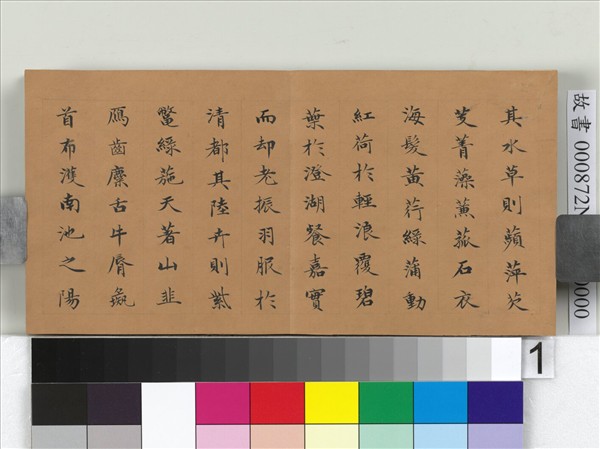 其水草則蘋萍芡
芰菁藻蒹菰石衣
海髮黃荇綠蒲動
紅荷於輕浪覆碧
葉於澄湖餐嘉實
而却老振羽服於
清都其陸卉則紫
鼈綠葹天著山韭
鴈齒麋舌牛脣彘
首布濩南池之陽
故書 000872N
0000
1